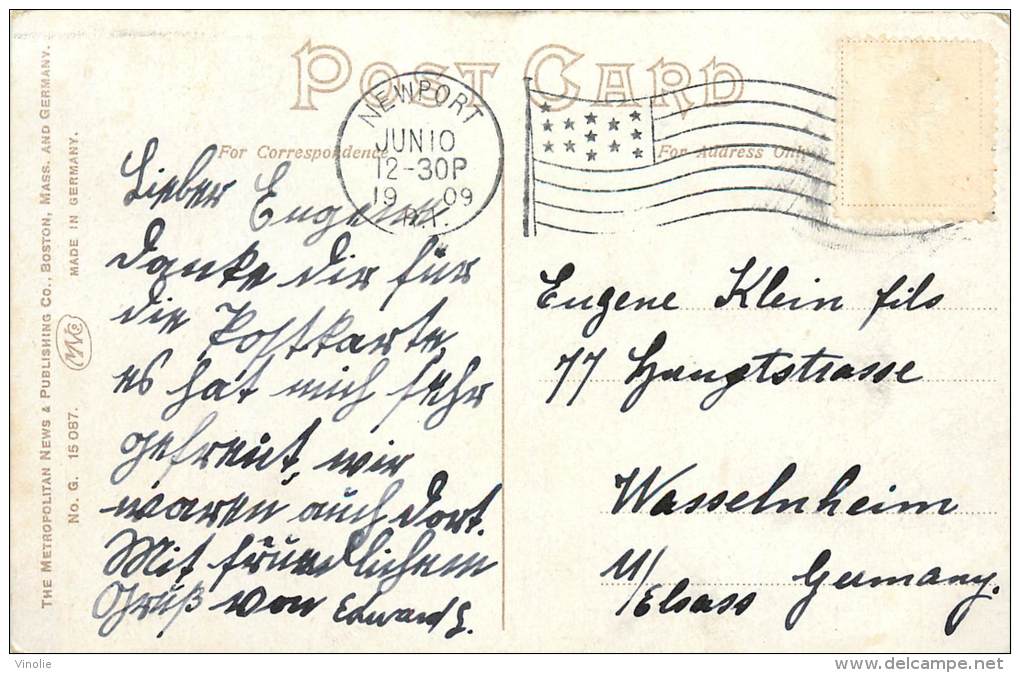 POST CARD
For Correspondence
For Address Only
NEWPORT
JUN 10
12-30P
1909
R.I.
THE METROPOLITAN NEWS & PUBLISHING CO., BOSTON, MASS. AND GERMANY.
No. G. 15 087.
MADE IN GERMANY.
Lieber Eugene
danke dir für
die Postkarte,
es hat mich sehr
gefreut, wir
waren auch dort.
Mit freundlichem
Gruß von Edward
Eugene Klein fils
77 Hauptstrasse
Wasselnheim
Elsass
Germany.
Vinolie
delcampe.net